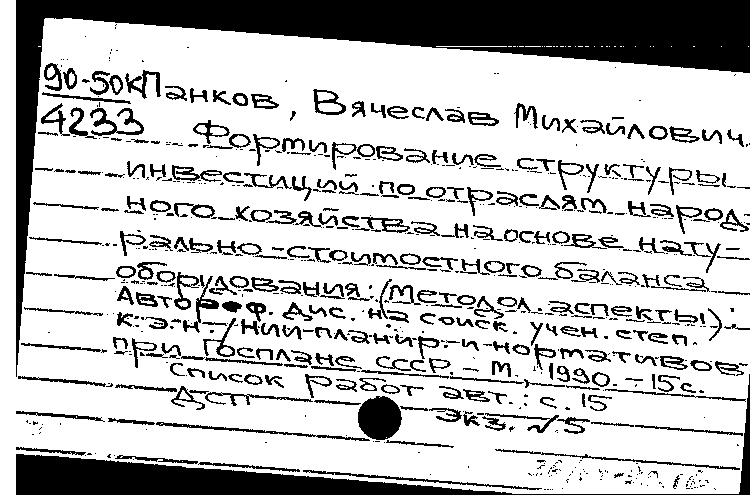 90-50к Панков, Вячеслав Михайлович.
4233 Формирование структуры
инвестиций по отраслям народ-
ного хозяйства на основе нату-
рально-стоимостного баланса
оборудования: (Методол. аспекты):
Автореф. дис. на соиск. учен. степ.
к.э.н. / НИИ планир. и нормативов
при Госплане СССР. - М., 1990. - 15 с.
Список работ авт.: с. 15
ДСП Экз. №5